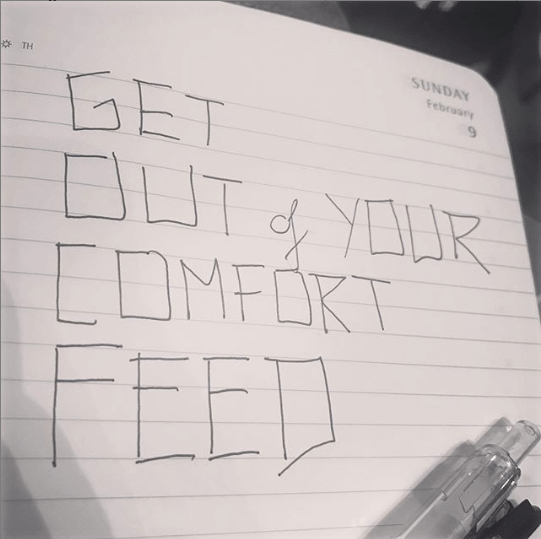 TH
SUNDAY
February
9
GET
OUT of YOUR
COMFORT
FEED